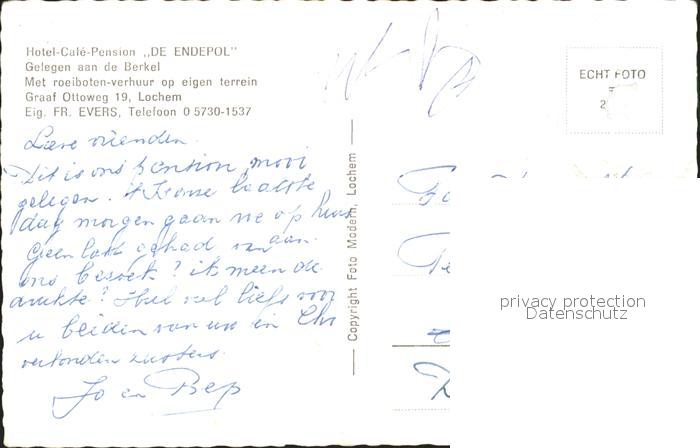 Hotel-Café-Pension „DE ENDEPOL"
Gelegen aan de Berkel
Met roeiboten-verhuur op eigen terrein
Graaf Ottoweg 19, Lochem
Eig. FR. EVERS, Telefoon 0 5730-1537
ECHT FOTO
2
Lieve vrienden.
Dit is ons pension, mooi
gelegen. it is onze laatste
dag morgen gaan we op huis
aan.
Geen last gehad van
ons bezoek? ik meen de
drukte? Heel veel liefs voor
u beiden van uw in Chr
verbonden zusters.
Jo en Bep
— Copyright Foto Modern, Lochem —
privacy protection
Datenschutz